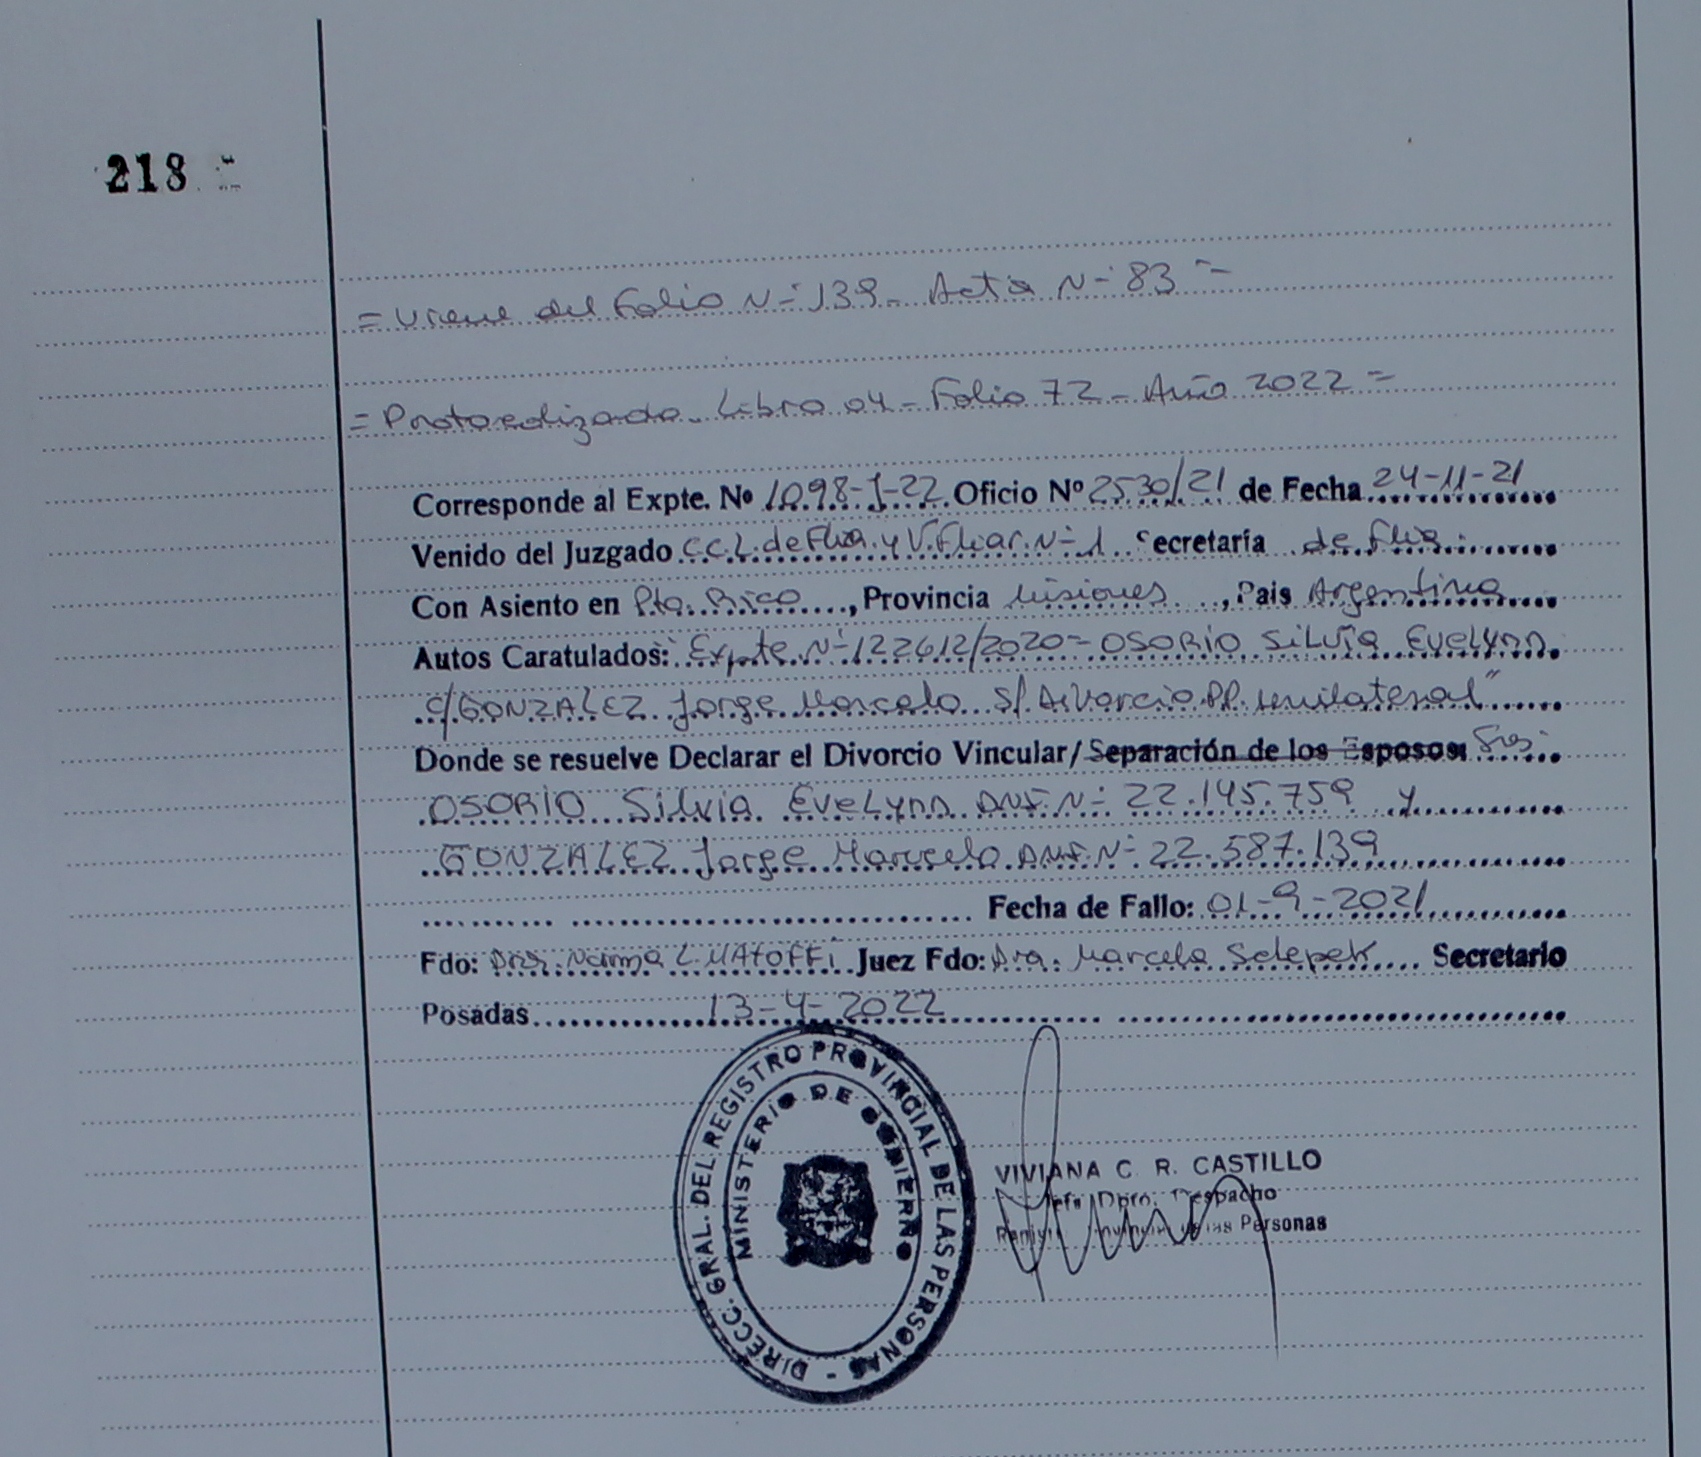 218
= Viene del Folio N- 139 - Acta N- 83 =
= Protocolizado - Libro 04 - Folio 72 - Año 2022 =
Corresponde al Expte. Nº 1098-J-22 Oficio Nº 2530/21 de Fecha 24-11-21
Venido del Juzgado C.C.L. de Flia. y V. Fliar. N- 1 Secretaría de Flia.
Con Asiento en Pto. Rico, Provincia Misiones, Pais Argentina
Autos Caratulados: Expte N- 122612/2020 - OSORIO Silvia Evelynn
c/GONZALEZ Jorge Marcelo S/ Divorcio PP. unilateral"
Donde se resuelve Declarar el Divorcio Vincular/Separación de los Esposos: Sres.
OSORIO Silvia Evelynn DNI. N- 22.145.759 y
GONZALEZ Jorge Marcelo DNI. N- 22.587.139
Fecha de Fallo: 01-9-2021
Fdo: Dra. Norma L. MATOFFI Juez Fdo: Dra. Marcela Selepek Secretario
Posadas 13-4-2022
DIRECC. GRAL. DEL REGISTRO PROVINCIAL DE LAS PERSONAS -
MINISTERIO DE GOBIERNO
VIVIANA C. R. CASTILLO
Jefa Dpto. Despacho
Registro Provincial de las Personas